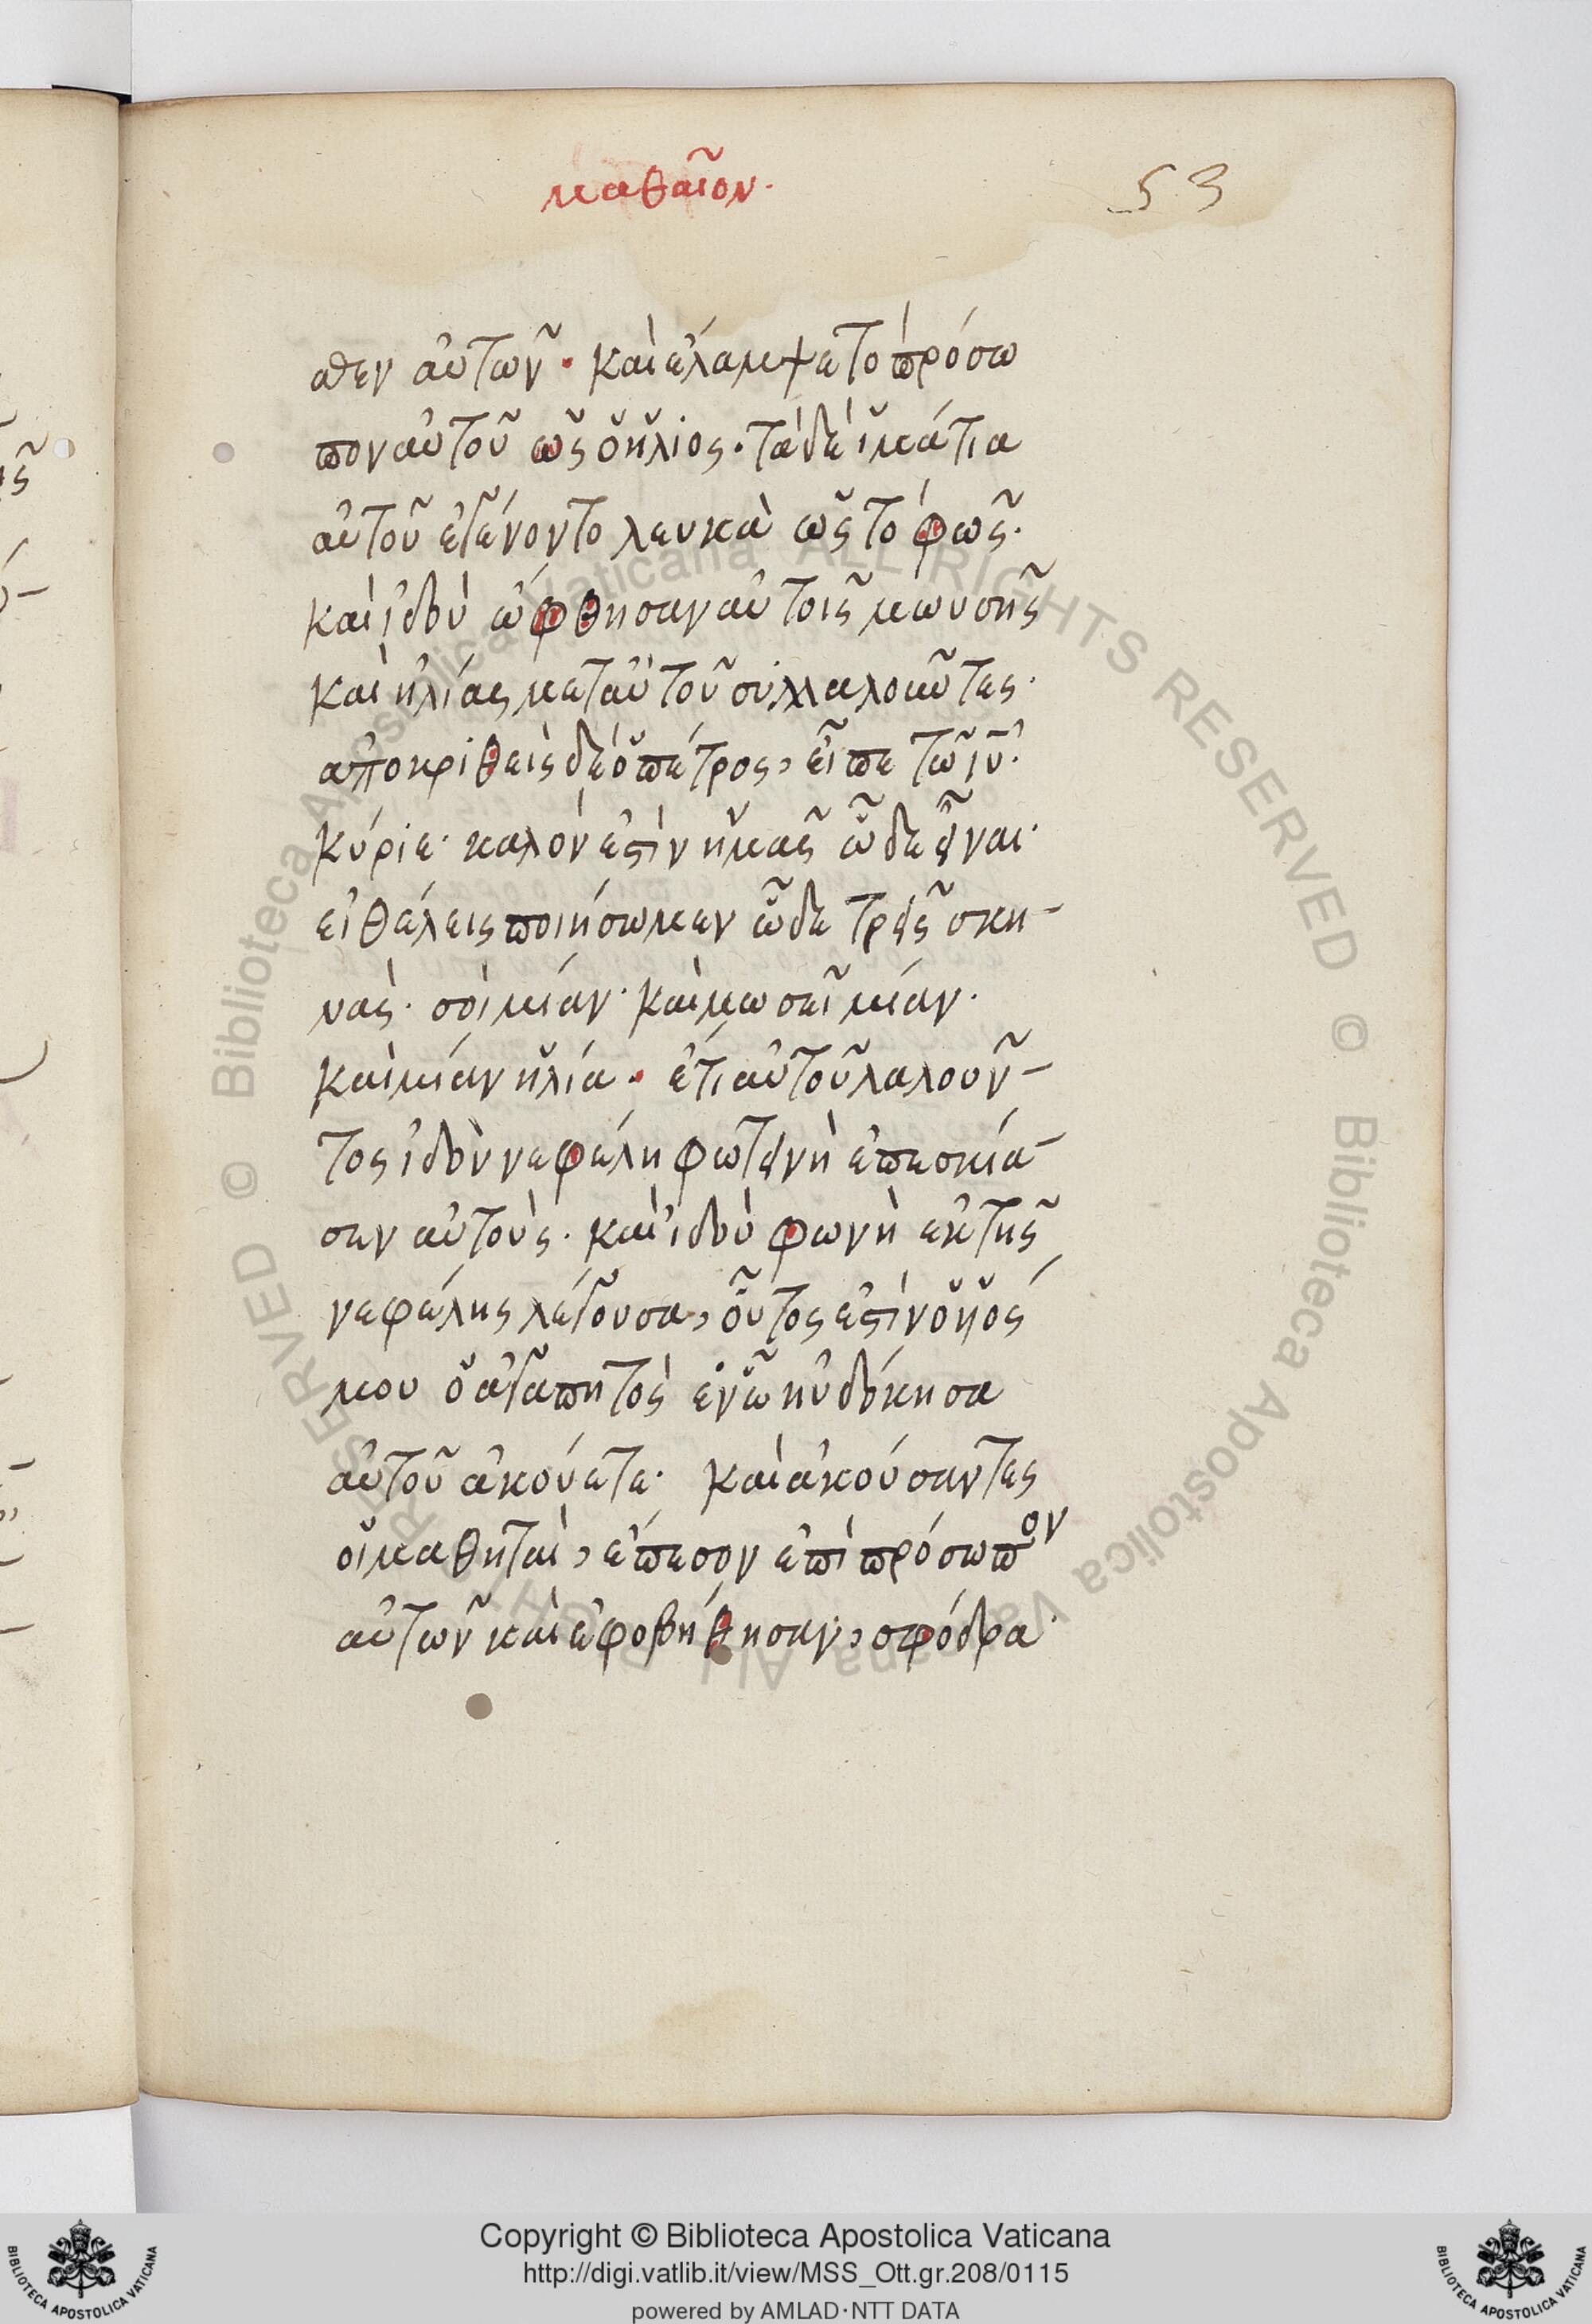 μαθαῖον.
53
σθεν αὐτῶν · καὶ ἐλαμψε τὸ πρόσω
πον αὐτοῦ ὡς ὁ ἥλιος · τὰ δὲ ἱμάτια
αὐτοῦ ἐγένοντο λευκὰ ὡς τὸ φῶς ·
καὶ ἰδοὺ ὤφθησαν αὐτοῖς μωυσῆς
καὶ ἠλίας μετ αὐτοῦ συλλαλοῦντες ·
ἀποκριθεὶς δὲ ὁ πέτρος, εἶπε τῶ ἰῦ ·
κύριε · καλόν ἐστὶν ἡμᾶς ὧδε εἶναι ·
εἰ θέλεις ποιήσωμεν ὧδε τρεῖς σκη-
νάς · σοὶ μίαν · καὶ μωσεῖ μίαν ·
καὶ μίαν ἡλία · ἔτι αὐτοῦ λαλοῦν-
τος ἰδοὺ νεφέλη φωτεινὴ ἐπεσκία-
σεν αὐτούς · καὶ ἰδοὺ φωνὴ ἐκ τῆς
νεφέλης λέγουσα, οὗτος ἐστὶν ὁ υἱός
μου ὁ ἀγαπητὸς ἐν ὧ ηὐδόκησα
αὐτοῦ ἀκούετε · καὶ ἀκούσαντες
οἱ μαθηταὶ, ἔπεσον ἐπὶ πρόσωπον
αὐτῶν καὶ ἐφοβήθησαν, σφόδρα ·
Copyright © Biblioteca Apostolica Vaticana
http://digi.vatlib.it/view/MSS_Ott.gr.208/0115
powered by AMLAD·NTT DATA